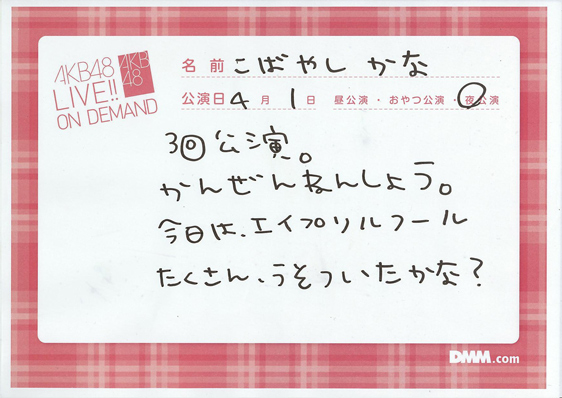 AKB48
LIVE!!
ON DEMAND
AKB
48
名前 こばやし かな
公演日 4月 1日 昼公演・おやつ公演・夜公演
3回公演。
かんぜんねんしょう。
今日は、エイプリルフール
たくさん、うそついたかな?
DMM.com